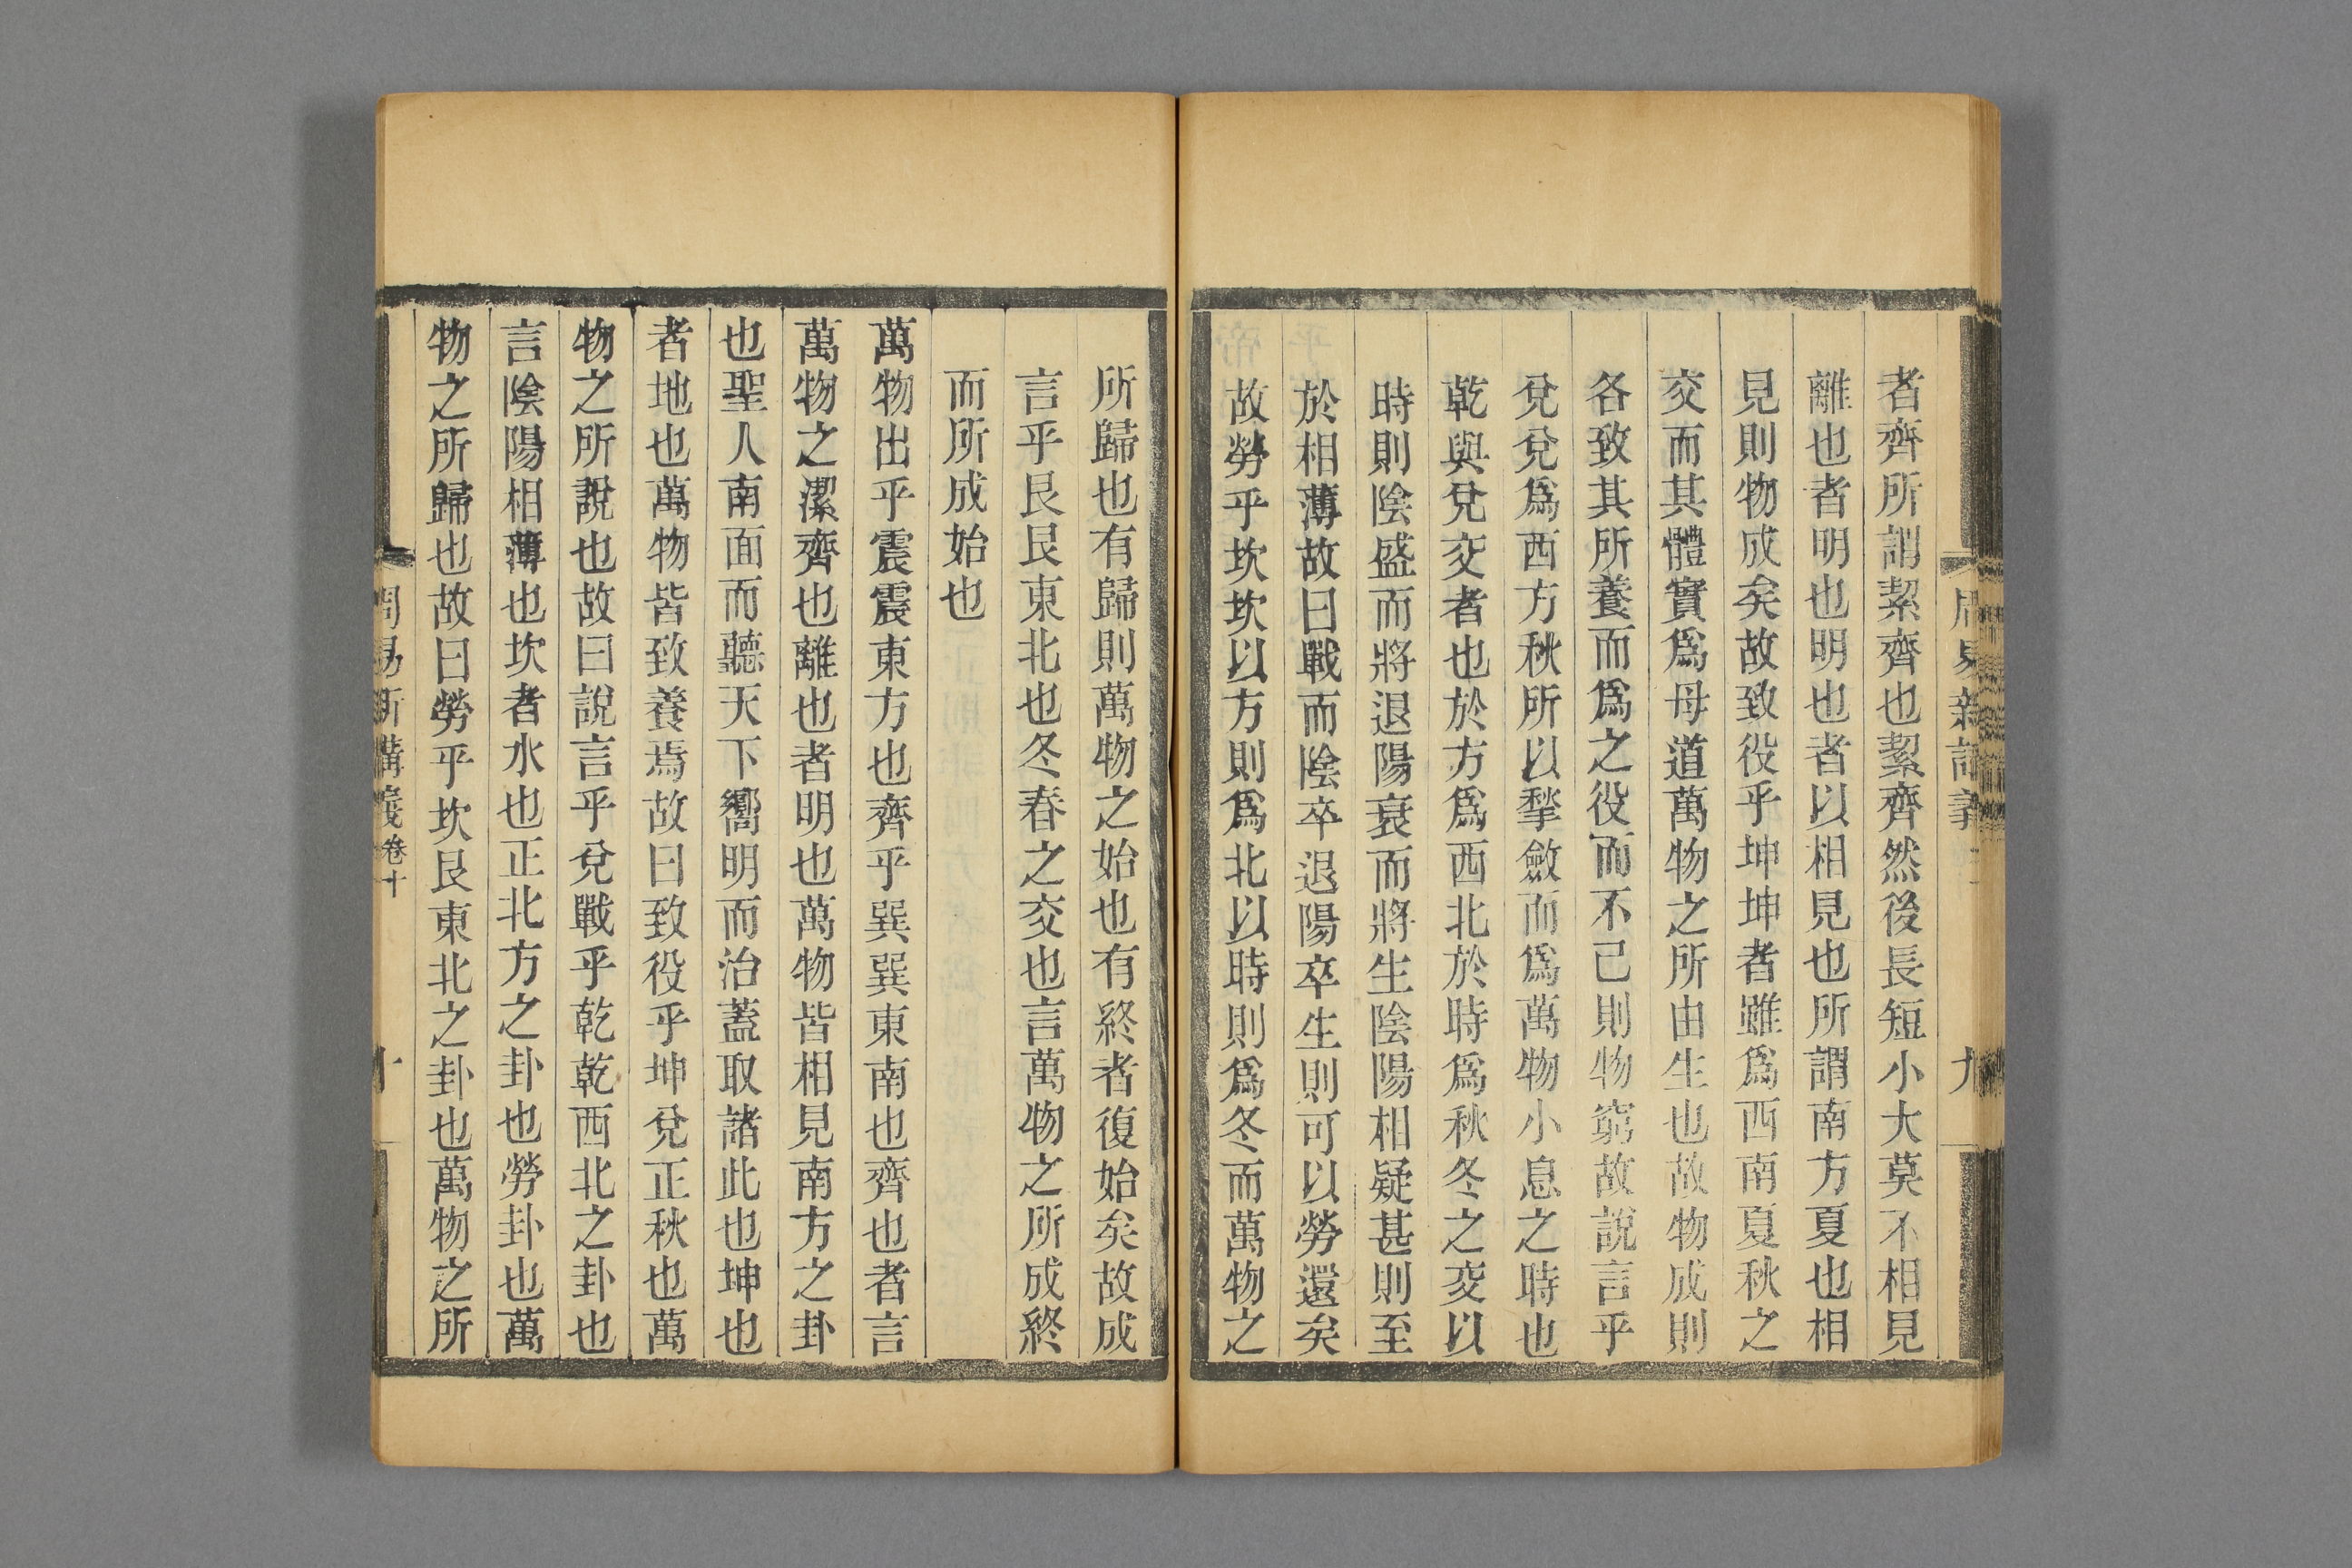 者齊所謂絜齊也絜齊然後長短小大莫不相見
離也者明也明也者以相見也所謂南方夏也相
見則物成矣故致役乎坤坤者雖爲西南夏秋之
交而其體實爲母道萬物之所由生也故物成則
各致其所養而爲之役而不己則物窮故說言乎
兌兌爲西方秋所以揫斂而爲萬物小息之時也
乾與兌交者也於方爲西北於時爲秋冬之交以
時則陰盛而將退陽衰而將生陰陽相疑甚則至
於相薄故曰戰而陰卒退陽卒生則可以勞還矣
故勞乎坎坎以方則爲北以時則爲冬而萬物之
所歸也有歸則萬物之始也有終者復始矣故成
言乎艮艮東北也冬春之交也言萬物之所成終
而所成始也
萬物出乎震震東方也齊乎巽巽東南也齊也者言
萬物之潔齊也離也者明也萬物皆相見南方之卦
也聖人南面而聽天下嚮明而治蓋取諸此也坤也
者地也萬物皆致養焉故曰致役乎坤兌正秋也萬
物之所說也故曰說言乎兌戰乎乾乾西北之卦也
言陰陽相薄也坎者水也正北方之卦也勞卦也萬
物之所歸也故曰勞乎坎艮東北之卦也萬物之所
周易新講義卷十
十